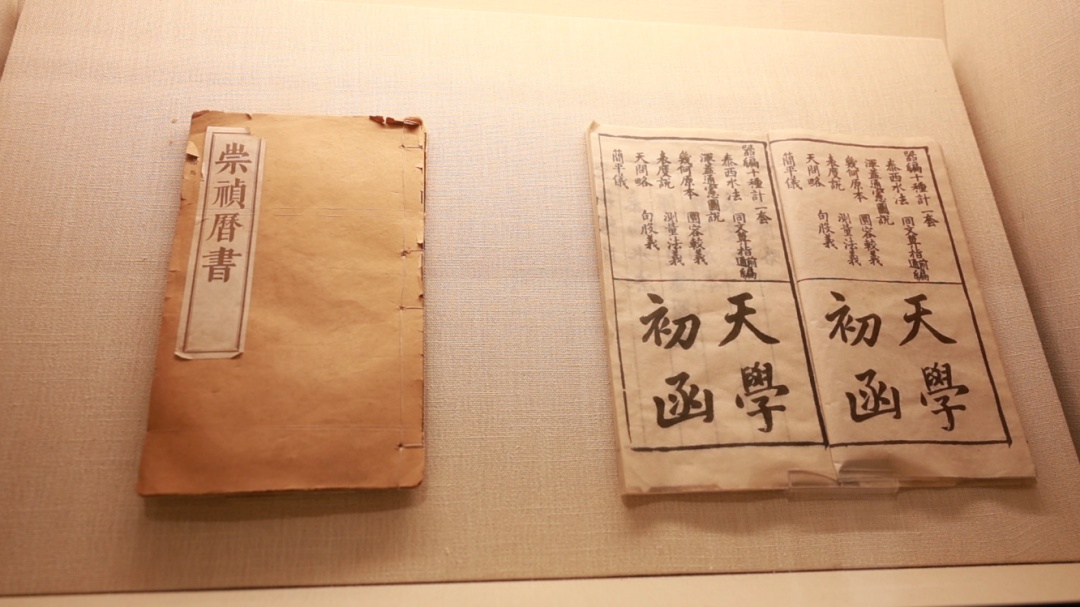 崇禎曆書
器編十種計一套
泰西水法 同文算指前編通編
渾蓋通憲圖說 圜容較義
幾何原本 測量法義
表度說 句股義
天問略
簡平儀
天學
初函
器編十種計一套
泰西水法 同文算指前編通編
渾蓋通憲圖說 圜容較義
幾何原本 測量法義
表度說 句股義
天問略
簡平儀
天學
初函